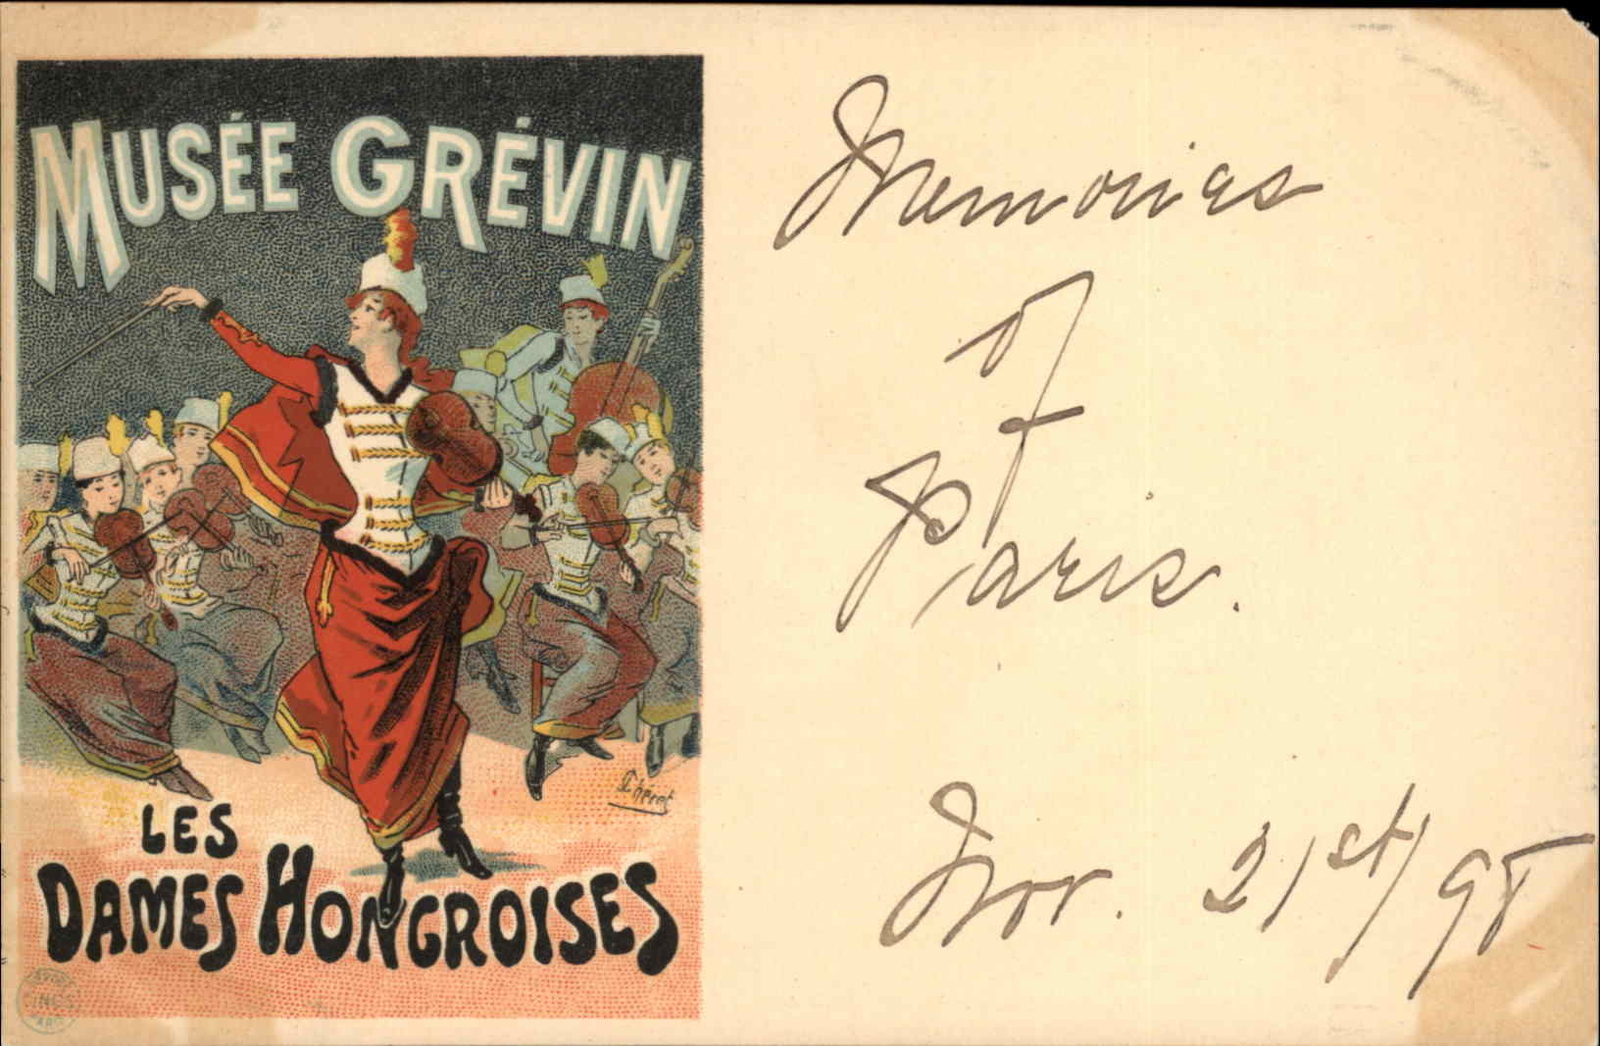 MUSÉE GRÉVIN
LES
DAMES HONGROISES
Chéret
Memories
of
Paris.
Nov. 21st/98